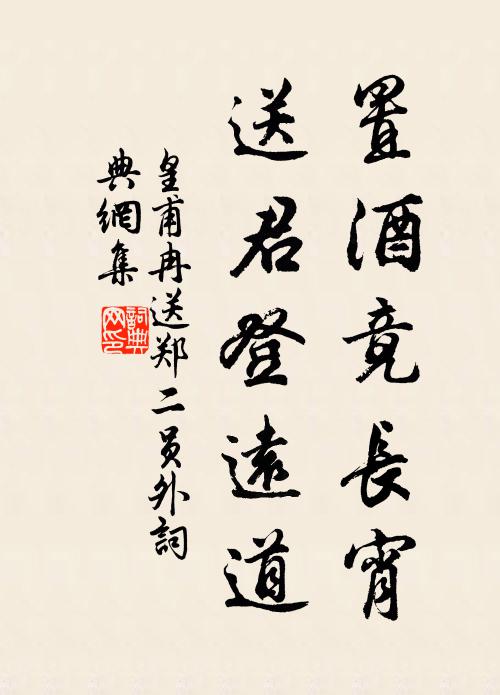 置酒竟長宵
送君登遠道
皇甫冉送郑二员外詞
典網集
詞典网印